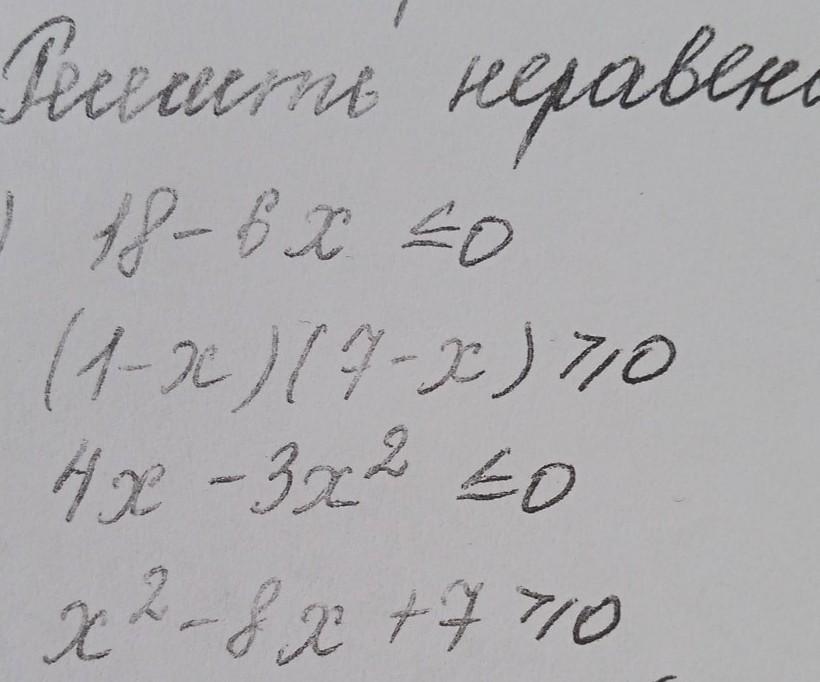 Решить неравенс
) 18 - 6x ≤ 0
(1-x)(7-x) ≥ 0
4x - 3x² ≤ 0
x² - 8x + 7 ≥ 0